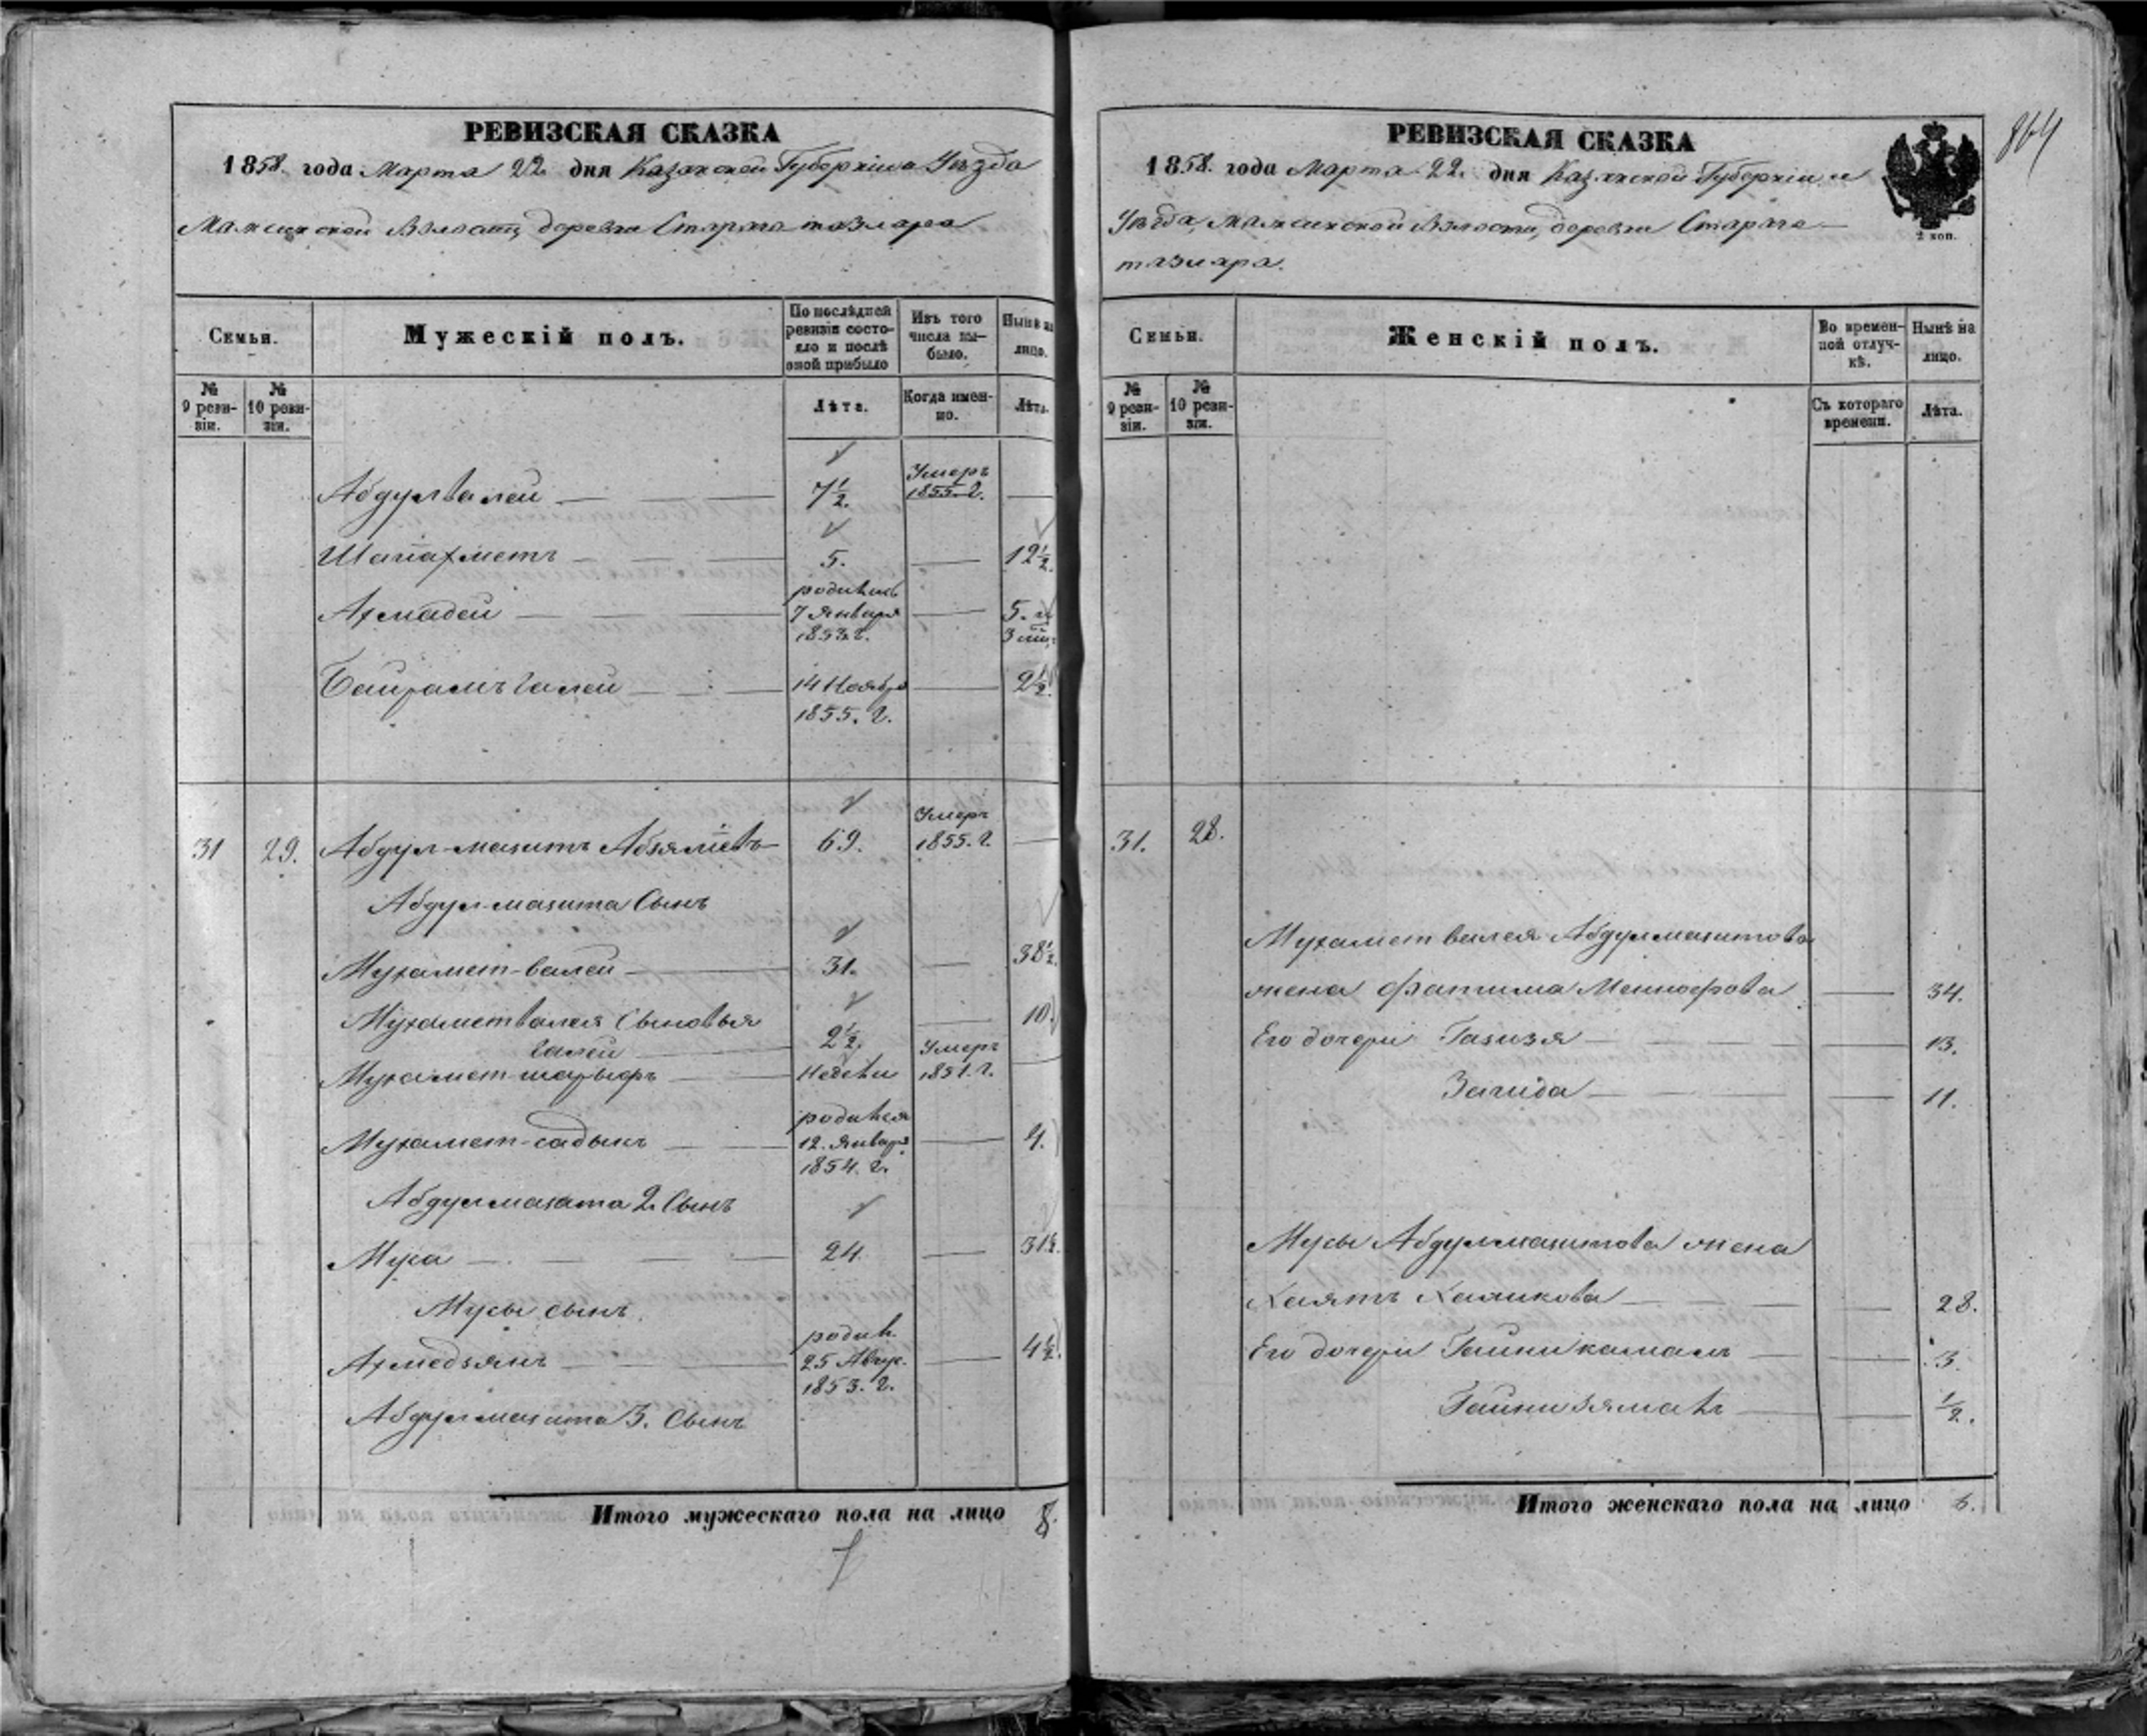 РЕВИЗСКАЯ СКАЗКА
1858. года Марта 22. дня Казанской Губерніи и Уѣзда
Мамсинской Волости, деревни Стараго тазлара
Семьи.
Мужескій полъ.
По послѣдней ревизіи состояло и послѣ оной прибыло
Изъ того числа выбыло.
Нынѣ на лицо.
№ 9 ревизіи.
№ 10 ревизіи.
Лѣта.
Когда именно.
Лѣта.
Абдулвалей 7½. Умеръ 1855. г.
Шагіахметъ 5. 12½.
Ахмадей родився 7 Января 1853 г. 5. и 3 мѣ.
Байрамъ Галей 14 Ноября 1855. г. 2½.
31 29. Абдул-мазитъ Абзялевъ 69. Умеръ 1855. г.
Абдул-мазита Сынъ
Мухамет-валей 31. 38½.
Мухаметвалея Сыновья
Галей 2½. 10
Мухамет-шарыфъ Недѣли Умеръ 1851. г.
Мухамет-садыкъ родився 12. Января 1854. г. 4.
Абдулмазита 2. Сынъ
Муса 24. 31½.
Мусы сынъ
Ахмедзянъ родив. 25 Авгус. 1853. г. 4½.
Абдулмазита 3. Сынъ
Итого мужескаго пола на лицо 8.
РЕВИЗСКАЯ СКАЗКА
864
1858. года Марта 22. дня Казанской Губерніи и
Уѣзда, Мамсинской Волости, деревни Стараго
тазлара.
2 коп.
Семьи.
Женскій полъ.
Во временной отлучкѣ.
Нынѣ на лицо.
№ 9 ревизіи.
№ 10 ревизіи.
Съ котораго времени.
Лѣта.
31. 28.
Мухамет валея Абдулмазитова
жена Фатима 34.
Его дочери Газизя 13.
Загида 11.
Мусы Абдулмазитова жена
Хаятъ Халикова 28.
Его дочери Гайникамалъ 3.
Гайни 1/2.
Итого женскаго пола на лицо 6.